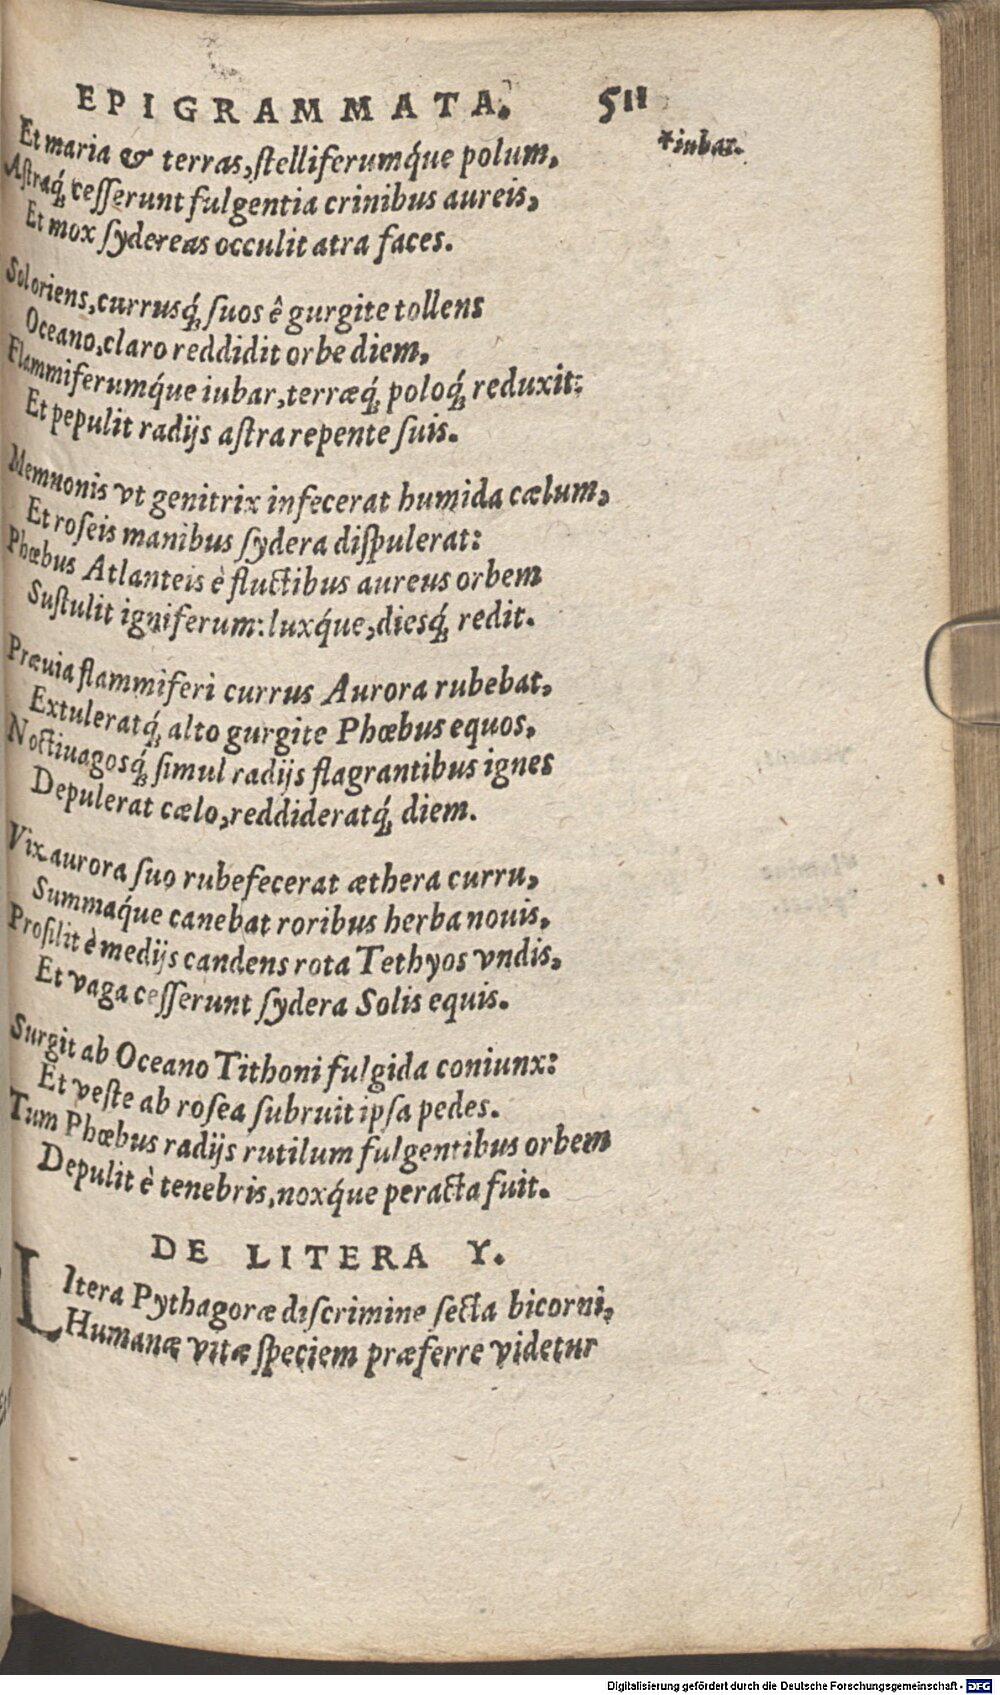 EPIGRAMMATA. 511
*iubar.
Et maria & terras, ſtelliferumq́ue polum,
Aſtraq́; ceſſerunt fulgentia crinibus aureis,
Et mox ſydereas occulit atra faces.
Sol oriens, currusq́; ſuos ê gurgite tollens
Oceano, claro reddidit orbe diem,
Flammiferumq́ue iubar, terræq́; poloq́; reduxit:
Et pepulit radijs aſtra repente ſuis.
Memnonis vt genitrix infecerat humida cælum,
Et roſeis manibus ſydera diſpulerat:
Phœbus Atlanteis è fluctibus aureus orbem
Suſtulit igniferum: luxq́ue, diesq́; redit.
Præuia flammiferi currus Aurora rubebat,
Extuleratq́; alto gurgite Phœbus equos,
Noctiuagosq́; ſimul radijs flagrantibus ignes
Depulerat cælo, reddideratq́; diem.
Vix aurora ſuo rubefecerat æthera curru,
Summaq́ue canebat roribus herba nouis,
Proſilit è medijs candens rota Tethyos vndis,
Et vaga ceſſerunt ſydera Solis equis.
Surgit ab Oceano Tithoni fulgida coniunx:
Et veſte ab roſea ſubruit ipſa pedes.
Tum Phœbus radijs rutilum fulgentibus orbem
Depulit è tenebris, noxq́ue peracta fuit.
DE LITERA Y.
LItera Pythagoræ diſcrimine ſecta bicorni,
Humanæ vitæ ſpeciem præferre videtur
Digitalisierung gefördert durch die Deutsche Forschungsgemeinschaft - DFG